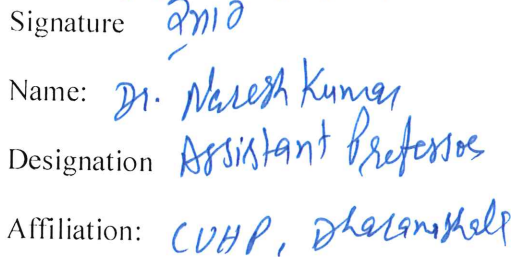 Signature
Name: Dr. Naresh Kumar
Designation Assistant Professor
Affiliation: CUHP, Dharamshala